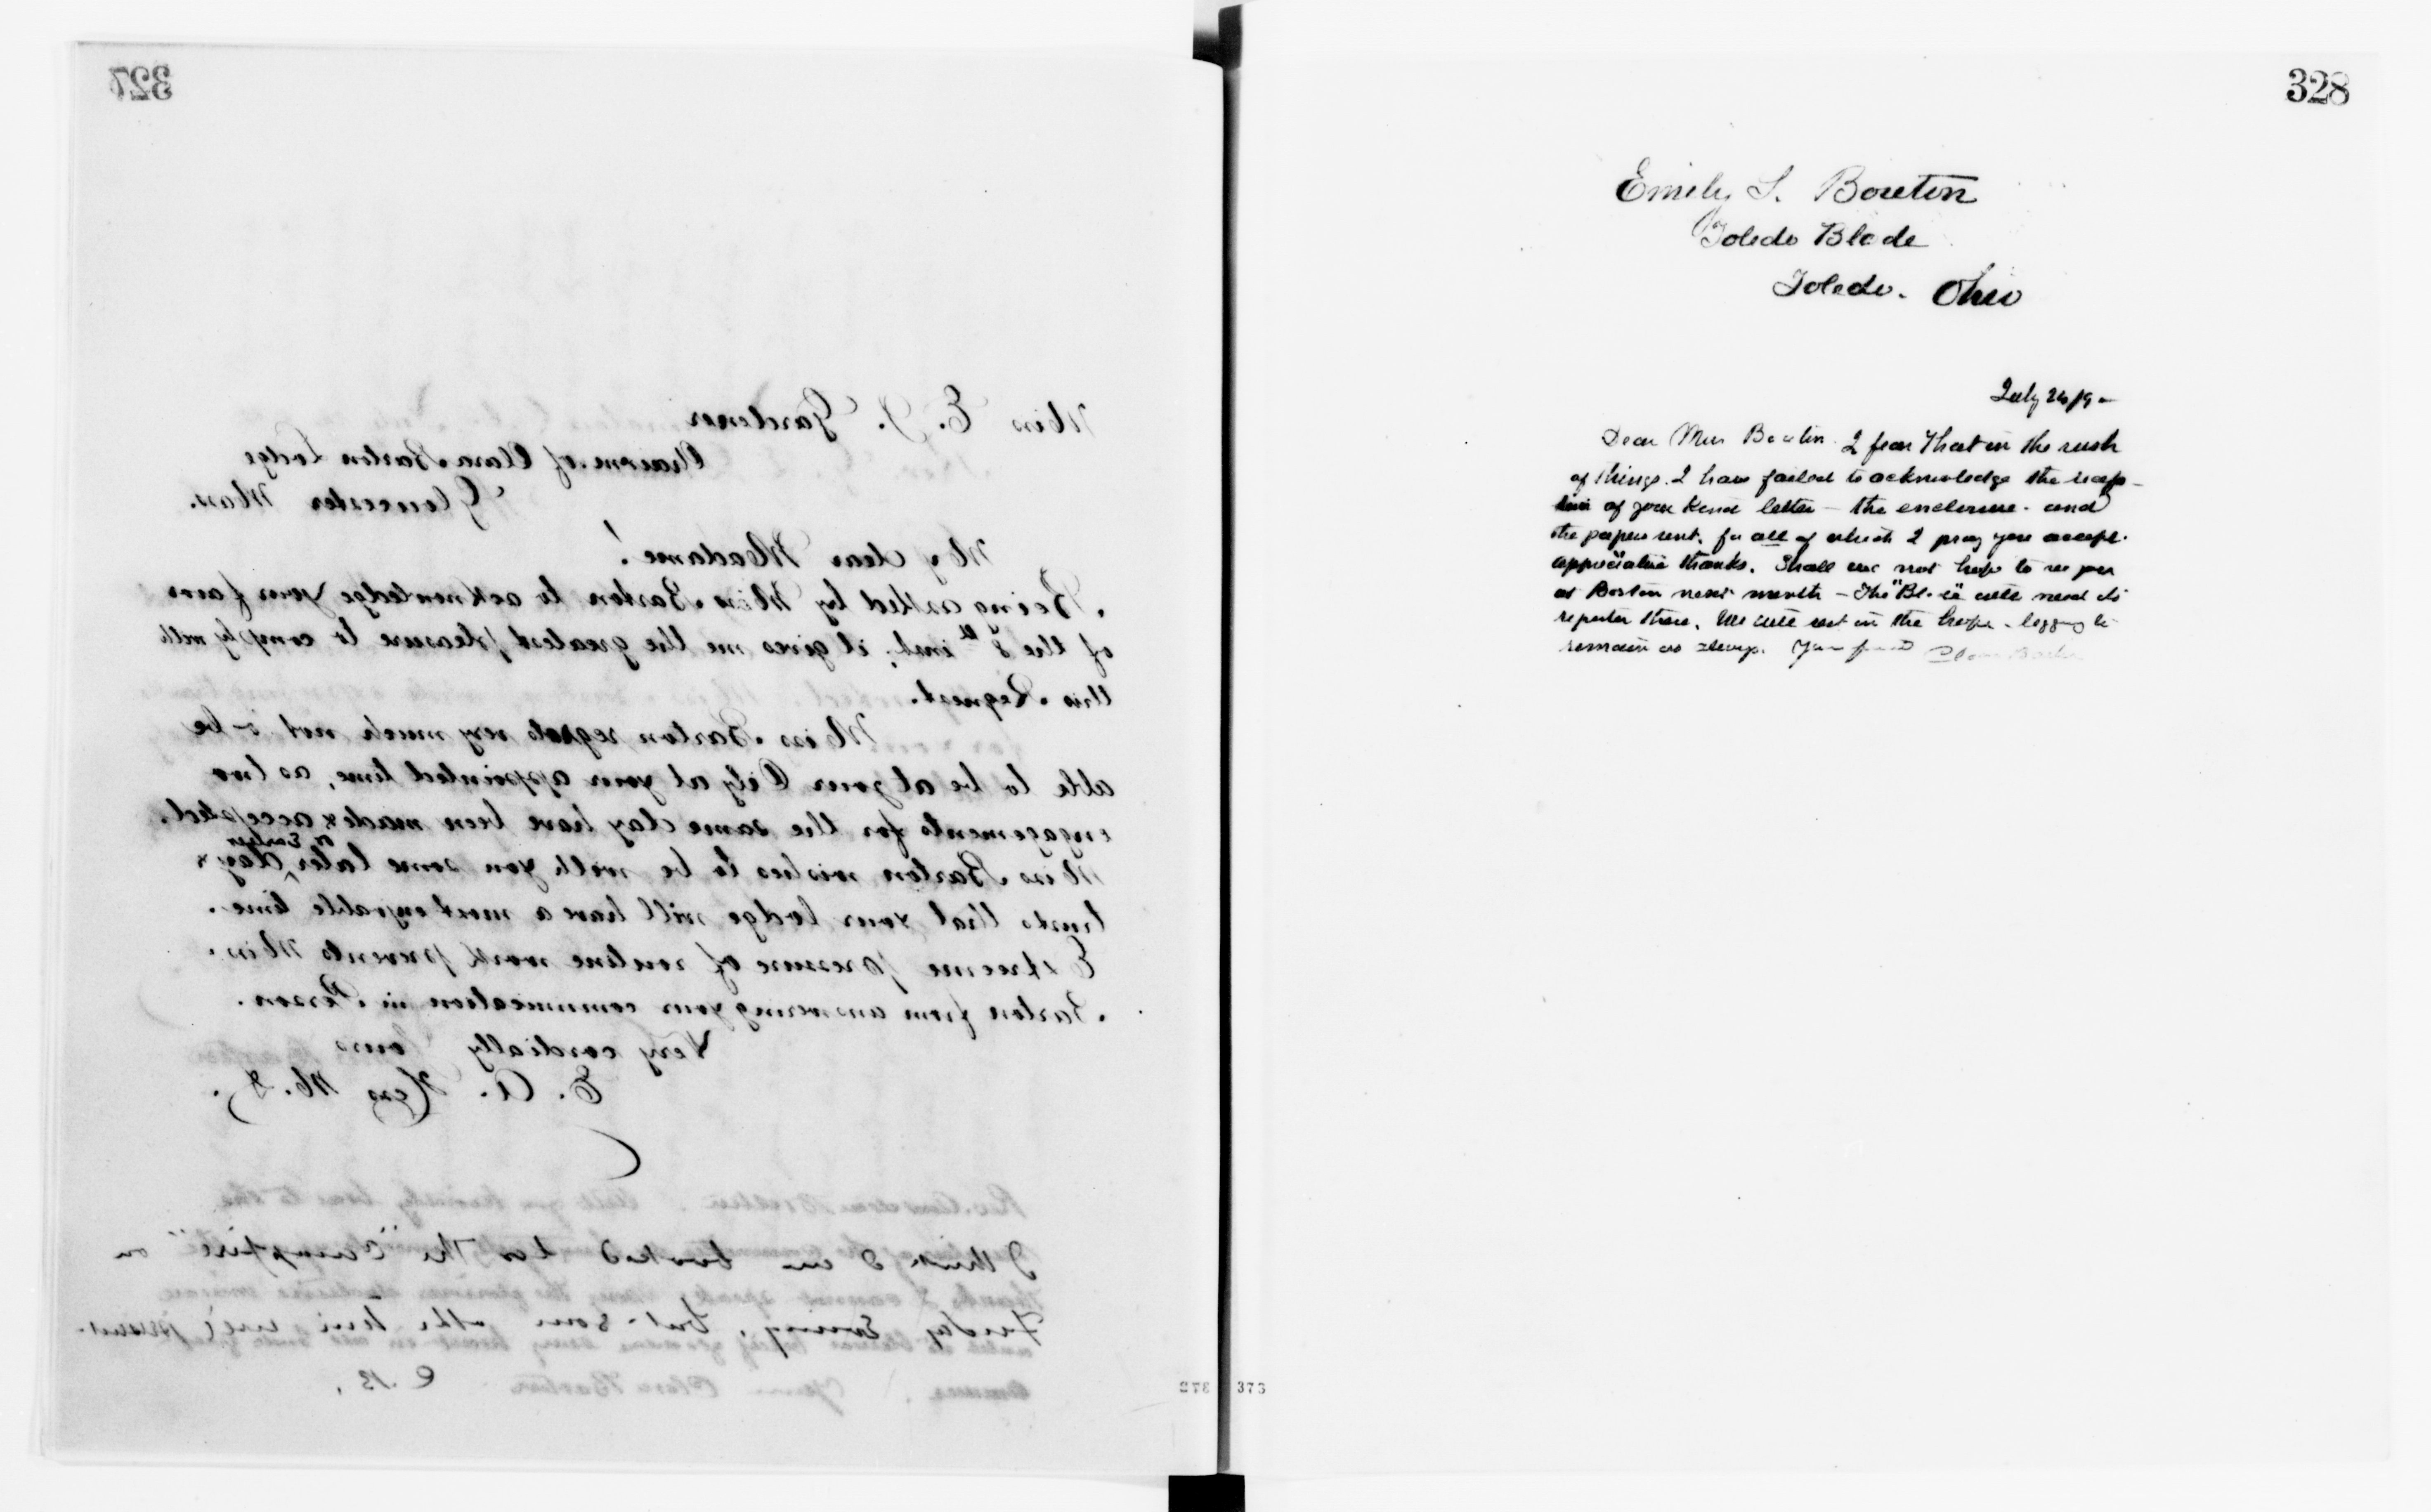 327
Miss E. J. Gardener
Chairm. of Clara Barton Lodge
Gloucester Mass.
My dear Madame!
Being asked by Miss Barton to acknowledge your favor
of the 8th inst, it gives me the greatest pleasure to comply with
this Request.
Miss Barton regrets very much not to be
able to be at your City at your appointed time, as two
engagements for the same day have been made & accepted.
or Earlier
Miss Barton wishes to be with you some later day &
trusts that your lodge will have a most enjoyable time.
Extreme pressure of routine work prevents Miss.
Barton from answering your communication in Person.
Very cordially Yours
E. A. Hess M. D.
I think I am booked for the "Campfire" on
Friday evening, but some other time
C. B.
328
Emily S. Bouton
Toledo Blade
Toledo. Ohio
July 24/9
Dear Miss Bouton. I fear that in the rush
of things. I have failed to acknowledge the recep-
tion of your kind letter – the enclosure. and
the papers sent, for all of which I pray you accept.
appreciative thanks. Shall we not hope to see you
at Boston next month – The "Blade" will need its
reporter there. We will rest in the hope. begging to
remain as always. Your friend Clara Barton
273 373